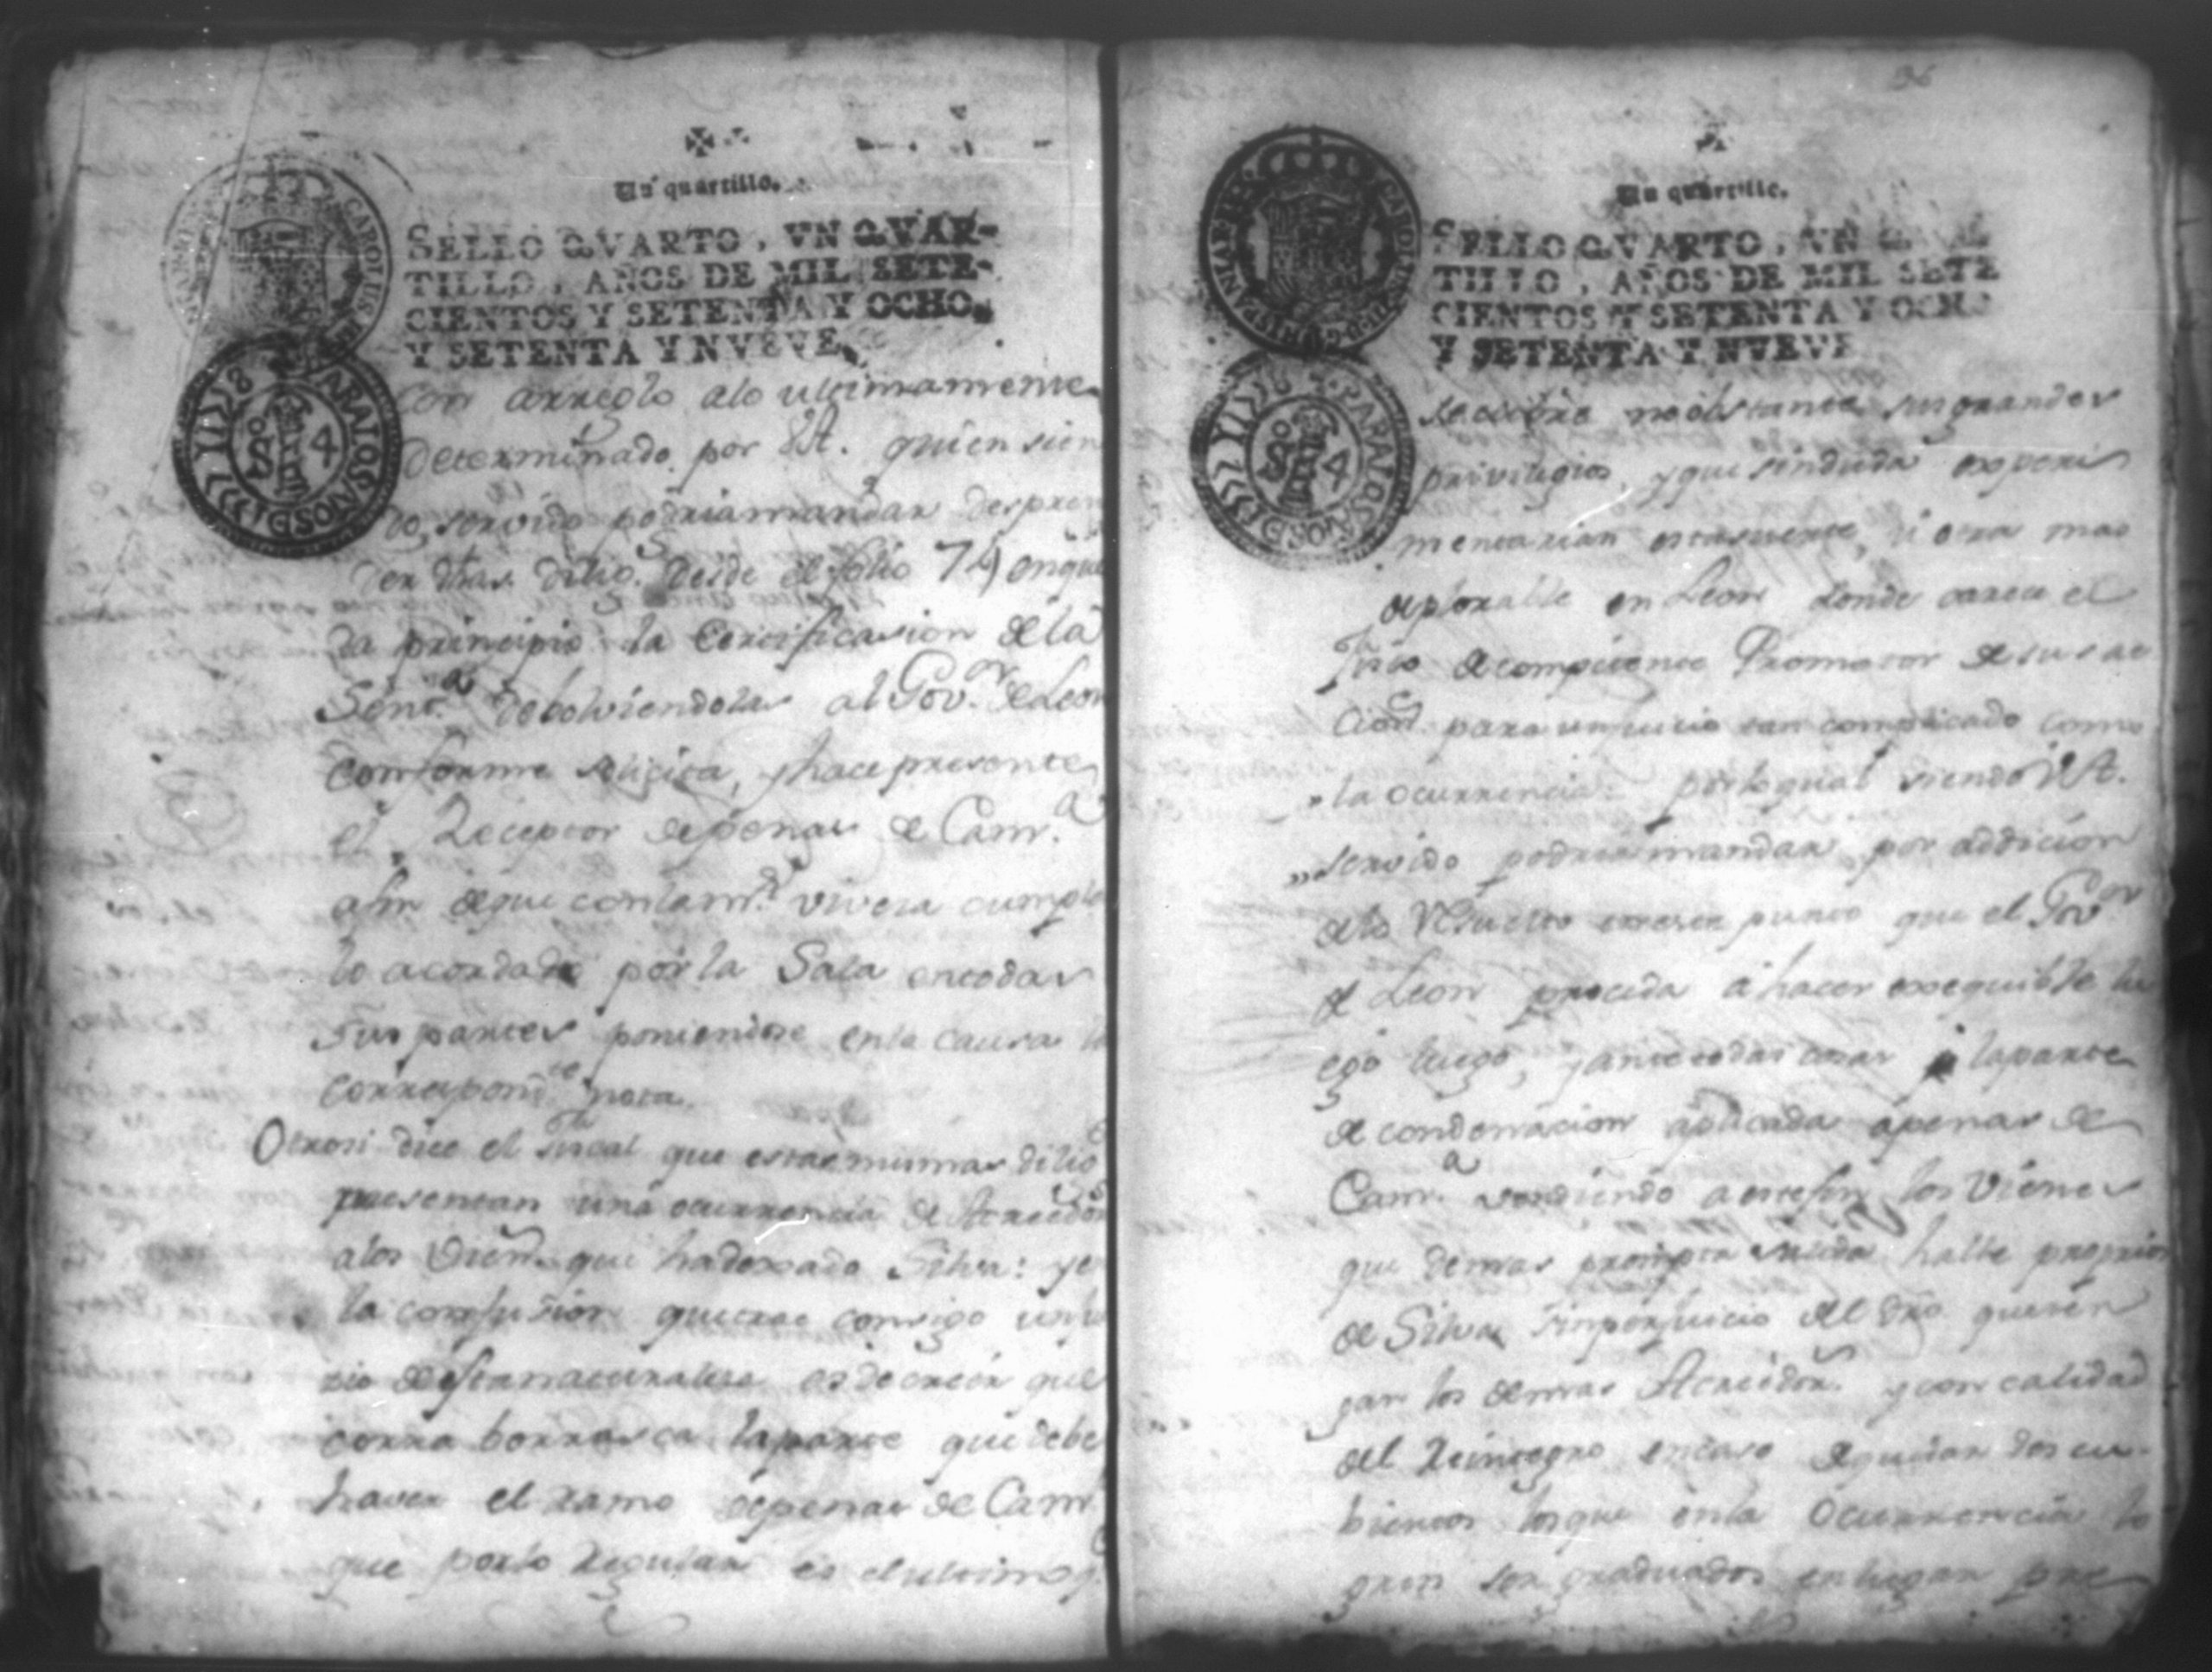 Un quartillo.
SELLO QVARTO, VN QVAR-
TILLO, AÑOS DE MIL SETE-
CIENTOS Y SETENTA Y OCHO,
Y SETENTA Y NVEVE.
CAROLUS III
PARA LOS AÑOS DE 1777 Y 1778
SO 4
con arreglo a lo ultimamente
determinado por VA. quien sien
do servido podria mandar despren
der dhas. dilig.s desde el folio 74 en que
da principio la Certificasion de la
Sent.a debolviendolas al Gov.or de Leon
conforme solicita, y hace presente
el Receptor de penas de Cam.a
a fin de que con la m.r viveza cumpla
lo acordado por la Sala en todas
sus partes poniendose en la causa la
correspond.te nota.
Otrosi dice el fiscal que estas mismas dilig.s
presentan una ocurrencia de Acreedor
a los Vien.s que ha dexado Silva: y
la confusion que trae consigo un jui
cio de esta naturalesa es de creer que
corra borrasca la parte que debe
haver el ramo de penas de Cam.a
que por lo regular es el ultimo q.e
96
Un quartillo.
SELLO QVARTO, VN QVAR
TILLO, AÑOS DE MIL SETE
CIENTOS Y SETENTA Y OCHO
Y SETENTA Y NVEVE
PARA LOS AÑOS DE 1777 Y 1778
SO 4
se cubre no obstante sus grandes
privilegios, y que sin duda experi
mentarian esta suerte, ú otra mas
deplorable en Leon donde carece el
fisco de competente Promotor de sus ac
cion.s para un juicio tan complicado como
la ocurrencia: por lo qual siendo VA.
servido podria mandar por addicion
de lo resuelto en este punto que el Gov.or
de Leon proceda á hacer exequible lu
ego luego, y ante todas cosas la parte
de condenacion aplicada á penas de
Cam.a vendiendo a este fin los Vienes
que de mas prompta salida halle proprios
de Silva sin perjuicio del dro. que ten
gan los demas Acreedor.s y con calidad
del Reintegro en caso de quedar descu-
biertos los que en la Ocurrencia lo
gren ser graduados en lugar pre